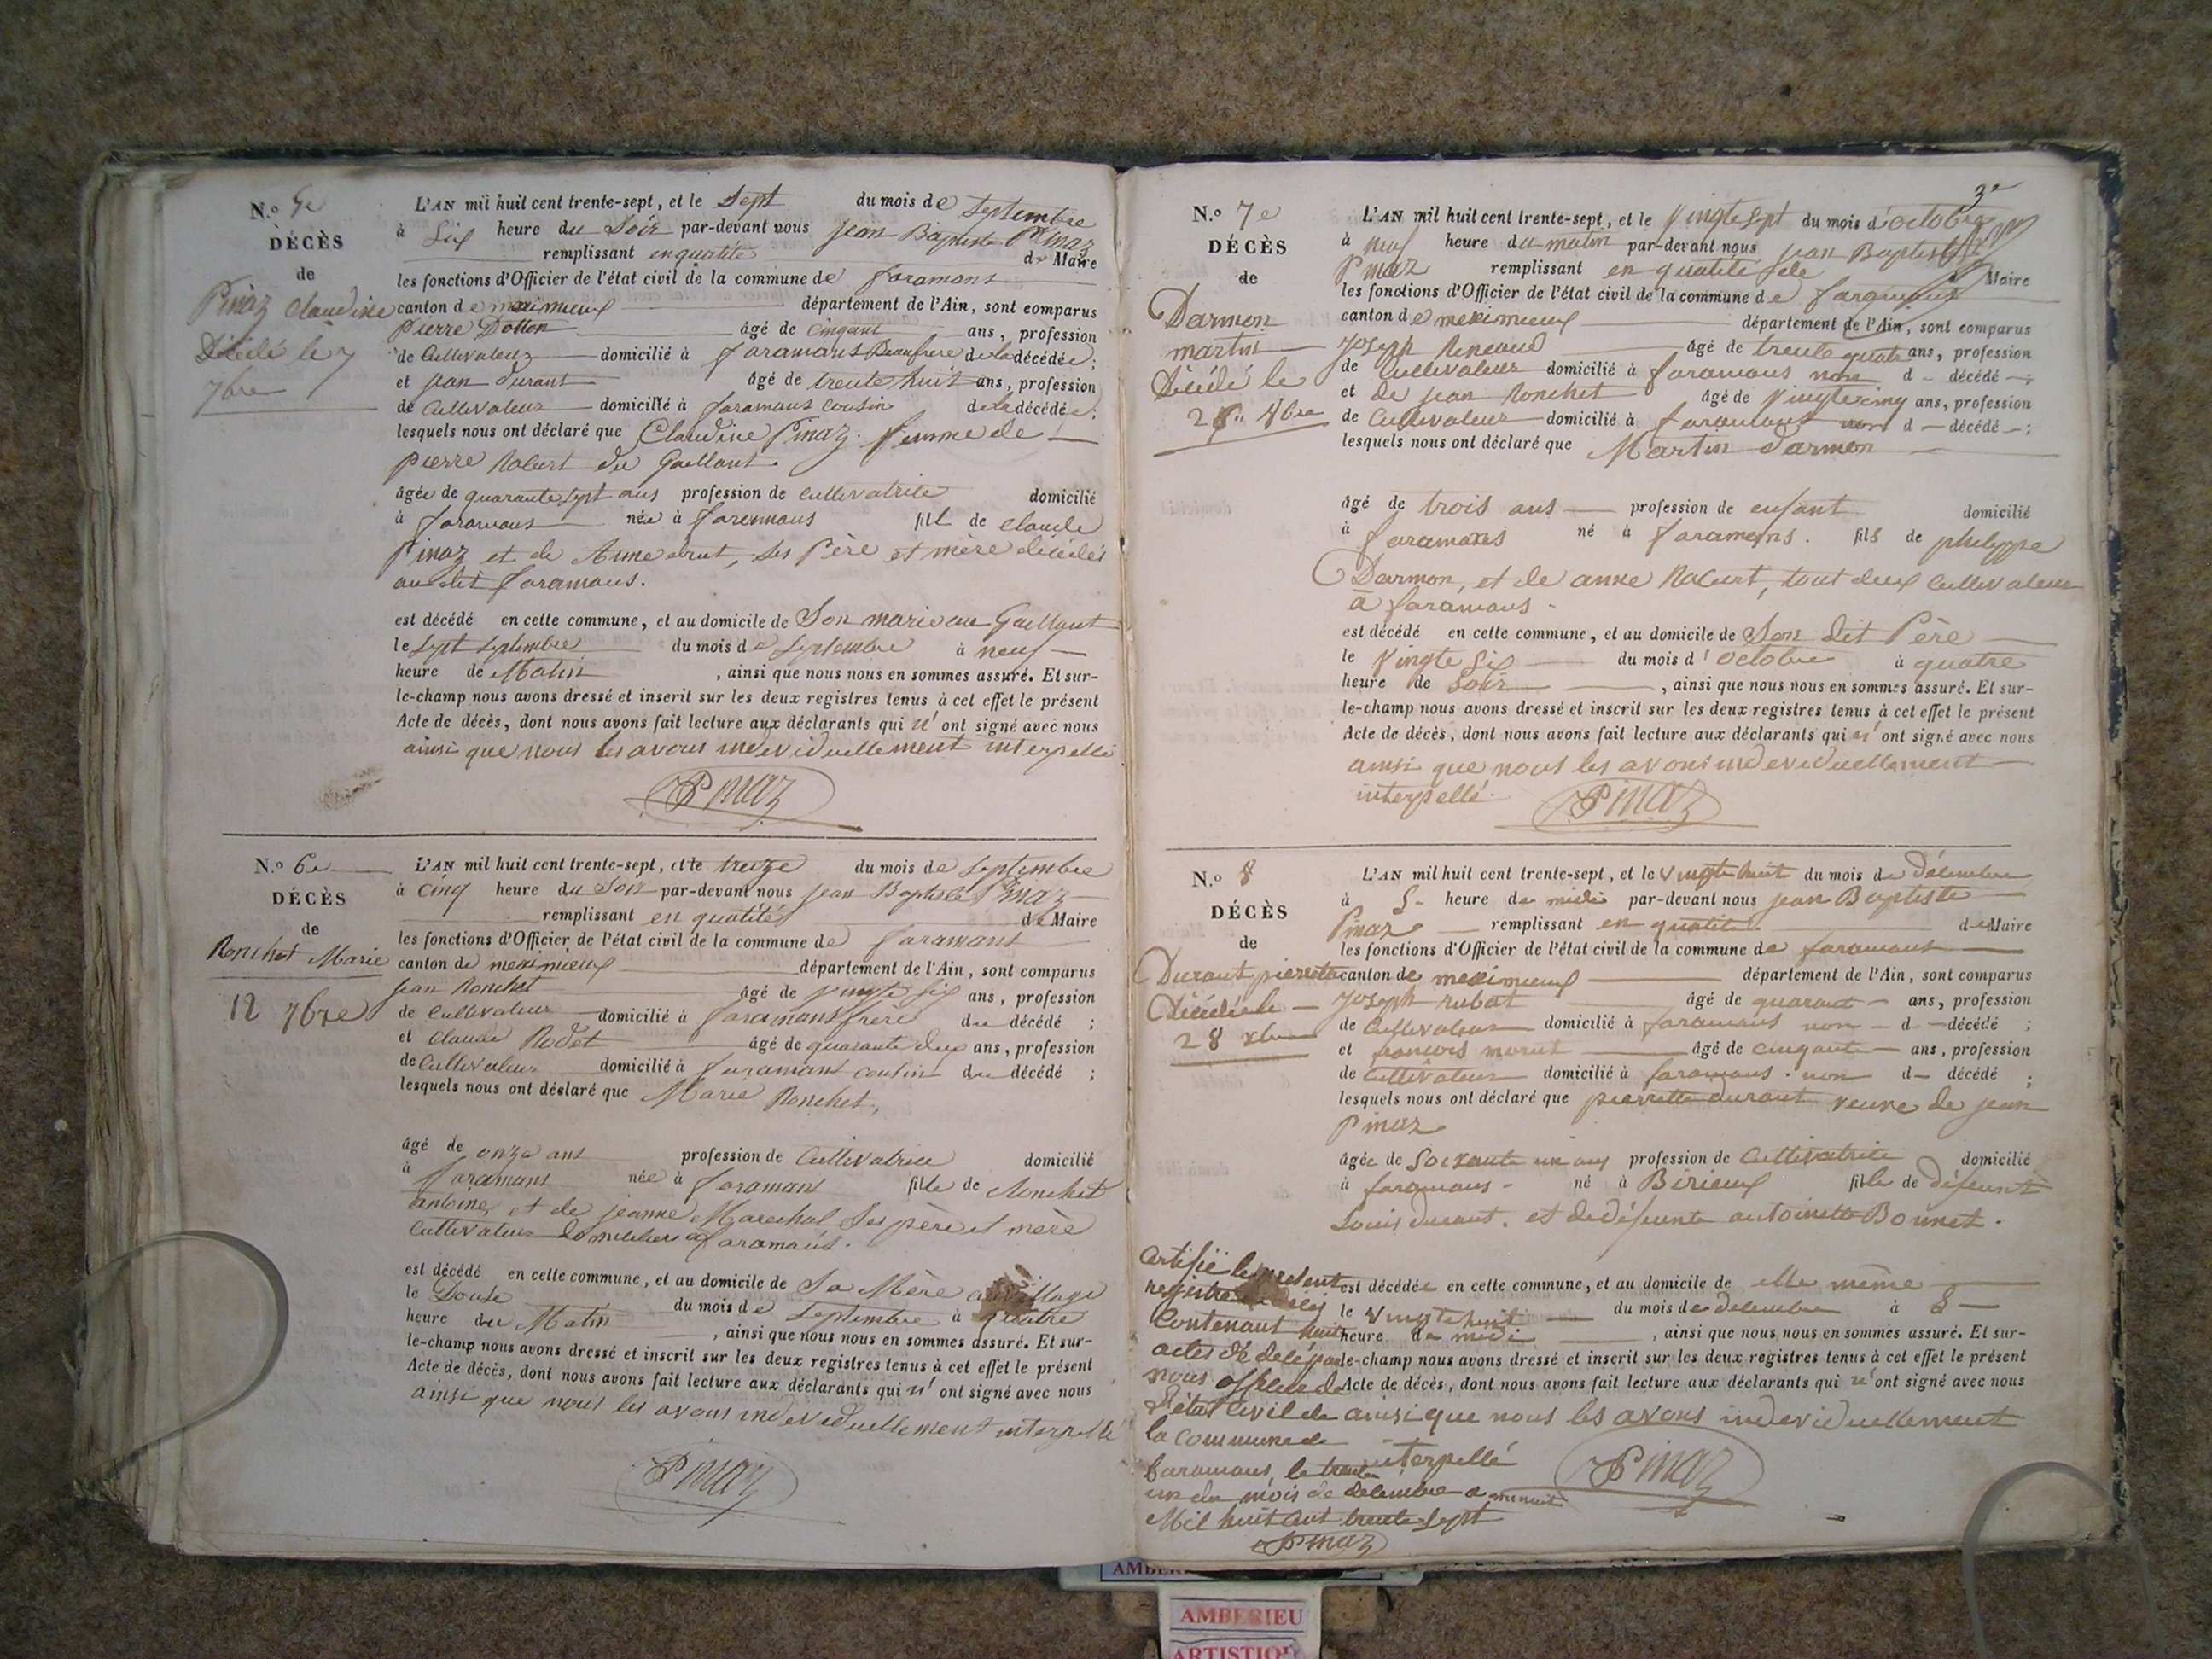 N.o 5e
DÉCÈS
de
Pinaz Claudine
Décédé le 7
7bre
L'AN mil huit cent trente-sept, et le Sept du mois de Septembre
à Six heure du Soir par-devant nous jean Baptiste Pinaz
remplissant en quatité de Maire
les fonctions d'Officier de l'état civil de la commune de faramans
canton de meximieux département de l'Ain, sont comparus
pierre Dotton âgé de cinqant ans, profession
de Cultivateur domicilié à faramans Beaufrere de la décédée;
et jean durant âgé de trente huit ans, profession
de Cultivateur domicilié à faramans cousin de la décédée;
lesquels nous ont déclaré que Claudine Pinaz. femme de
pierre Robert du Gaillant
âgée de quarante sept ans profession de cultivatrice domicilié
à faramans née à faremans fille de claude
Pinaz et de Anne drut, ses Père et mère décédés
au dit faramans.
est décédé en cette commune, et au domicile de Son mari au Gaillant
le sept septembre du mois de septembre à neuf
heure de Matin, ainsi que nous nous en sommes assuré. Et sur-
le-champ nous avons dressé et inscrit sur les deux registres tenus à cet effet le présent
Acte de décès, dont nous avons fait lecture aux déclarants qui n' ont signé avec nous
ainsi que nous les avons indeviduellement interpellé
Pinaz
N.o 6e
DÉCÈS
de
Ronchet Marie
12 7bre
L'AN mil huit cent trente-sept, et le treize du mois de septembre
à cinq heure du Soir par-devant nous jean Baptiste Pinaz
remplissant en quatité de Maire
les fonctions d'Officier de l'état civil de la commune de faramans
canton de meximieux département de l'Ain, sont comparus
jean Ronchet âgé de vingte six ans, profession
de Cultivateur domicilié à faramans frère du décédé;
et claude Rodet âgé de quarante deux ans, profession
de Cultivateur domicilié à faramans cousin du décédé;
lesquels nous ont déclaré que Marie Ronchet,
âgé de onze ans profession de Cultivatrice domicilié
à faramans née à faramans fille de Ronchet
antoine, et de jeanne Marechal ses père et mère
Cultivateur domiciliers a faramans.
est décédé en cette commune, et au domicile de Sa Mère au village
le Douse du mois de septembre à quatre
heure du Matin, ainsi que nous nous en sommes assuré. Et sur-
le-champ nous avons dressé et inscrit sur les deux registres tenus à cet effet le présent
Acte de décès, dont nous avons fait lecture aux déclarants qui n' ont signé avec nous
ainsi que nous les avons indeviduellement interpellé
Pinaz
3e
N.o 7e
DÉCÈS
de
Darmon
martin
Décédé le
26 8bre
L'AN mil huit cent trente-sept, et le Vingte sept du mois d'octobre
à neuf heure du matin par-devant nous jean Baptiste
Pinaz remplissant en quatité de Maire
les fonctions d'Officier de l'état civil de la commune de faramans
canton de meximieux département de l'Ain, sont comparus
joseph Reneaud âgé de trente quatre ans, profession
de Cultivateur domicilié à faramans non d - décédé;
et de jean Ronchet âgé de Vingtecinq ans, profession
de Cultivateur domicilié à faramans non d - décédé;
lesquels nous ont déclaré que Martin darmon
âgé de trois ans profession de enfant domicilié
à faramans né à faramens. fils de philippe
Darmon, et de anne Robert, tout deux cultivateur
à faramans.
est décédé en cette commune, et au domicile de Son dit Père
le Vingte Six du mois d'octobre à quatre
heure de Soir, ainsi que nous nous en sommes assuré. Et sur-
le-champ nous avons dressé et inscrit sur les deux registres tenus à cet effet le présent
Acte de décès, dont nous avons fait lecture aux déclarants qui n' ont signé avec nous
ainsi que nous les avons indeviduellement
interpellé.
Pinaz
N.o 8
DÉCÈS
de
Durant pierrette
Décédé le
28 xbre
L'AN mil huit cent trente-sept, et le Vingte huit du mois de Décembre
à heure de midi par-devant nous jean Baptiste
Pinaz remplissant en quatité de Maire
les fonctions d'Officier de l'état civil de la commune de faramans
canton de meximieux département de l'Ain, sont comparus
joseph rubat âgé de quarant ans, profession
de Cultivateur domicilié à faramans non d - décédé;
et françois morut âgé de cinqante ans, profession
de Cultivateur domicilié à faramans. non d - décédé;
lesquels nous ont déclaré que pierrette durant veuve de jean
Pinaz
âgée de Soixante un ans profession de Cultivatrice domicilié
à faramans né à Birieux fille de défeunt
Louis durant. et de défeunte antoinette Bonnet.
est décédée en cette commune, et au domicile de elle même
le Vingtehuit du mois de décembre à
heure de midi, ainsi que nous nous en sommes assuré. Et sur-
le-champ nous avons dressé et inscrit sur les deux registres tenus à cet effet le présent
Acte de décès, dont nous avons fait lecture aux déclarants qui n' ont signé avec nous
ainsi que nous les avons indeviduellement
interpellé
Pinaz
Certifié le present
registre
Contenant huit
actes de décé par
nous officier de
l'état Civil de
la Commune de
faramans, le trente
un du mois de décembre a minuit
Mil huit cent trente sept
Pinaz
AMBERIEU
ARTISTIQ